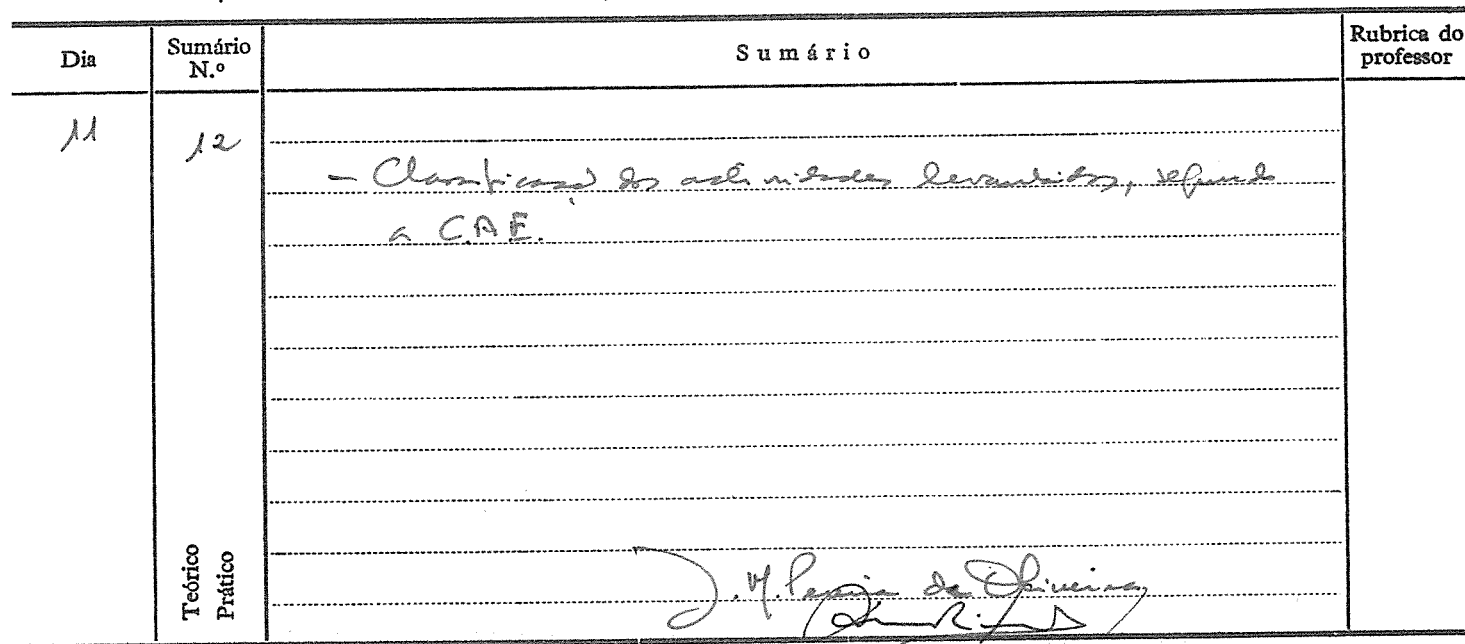 Dia
Sumário N.º
Sumário
Rubrica do professor
11
12
- Classificação das actividades levantadas, segundo
a C.A.E.
Teórico
Prático
J. M. Pereira de Oliveira